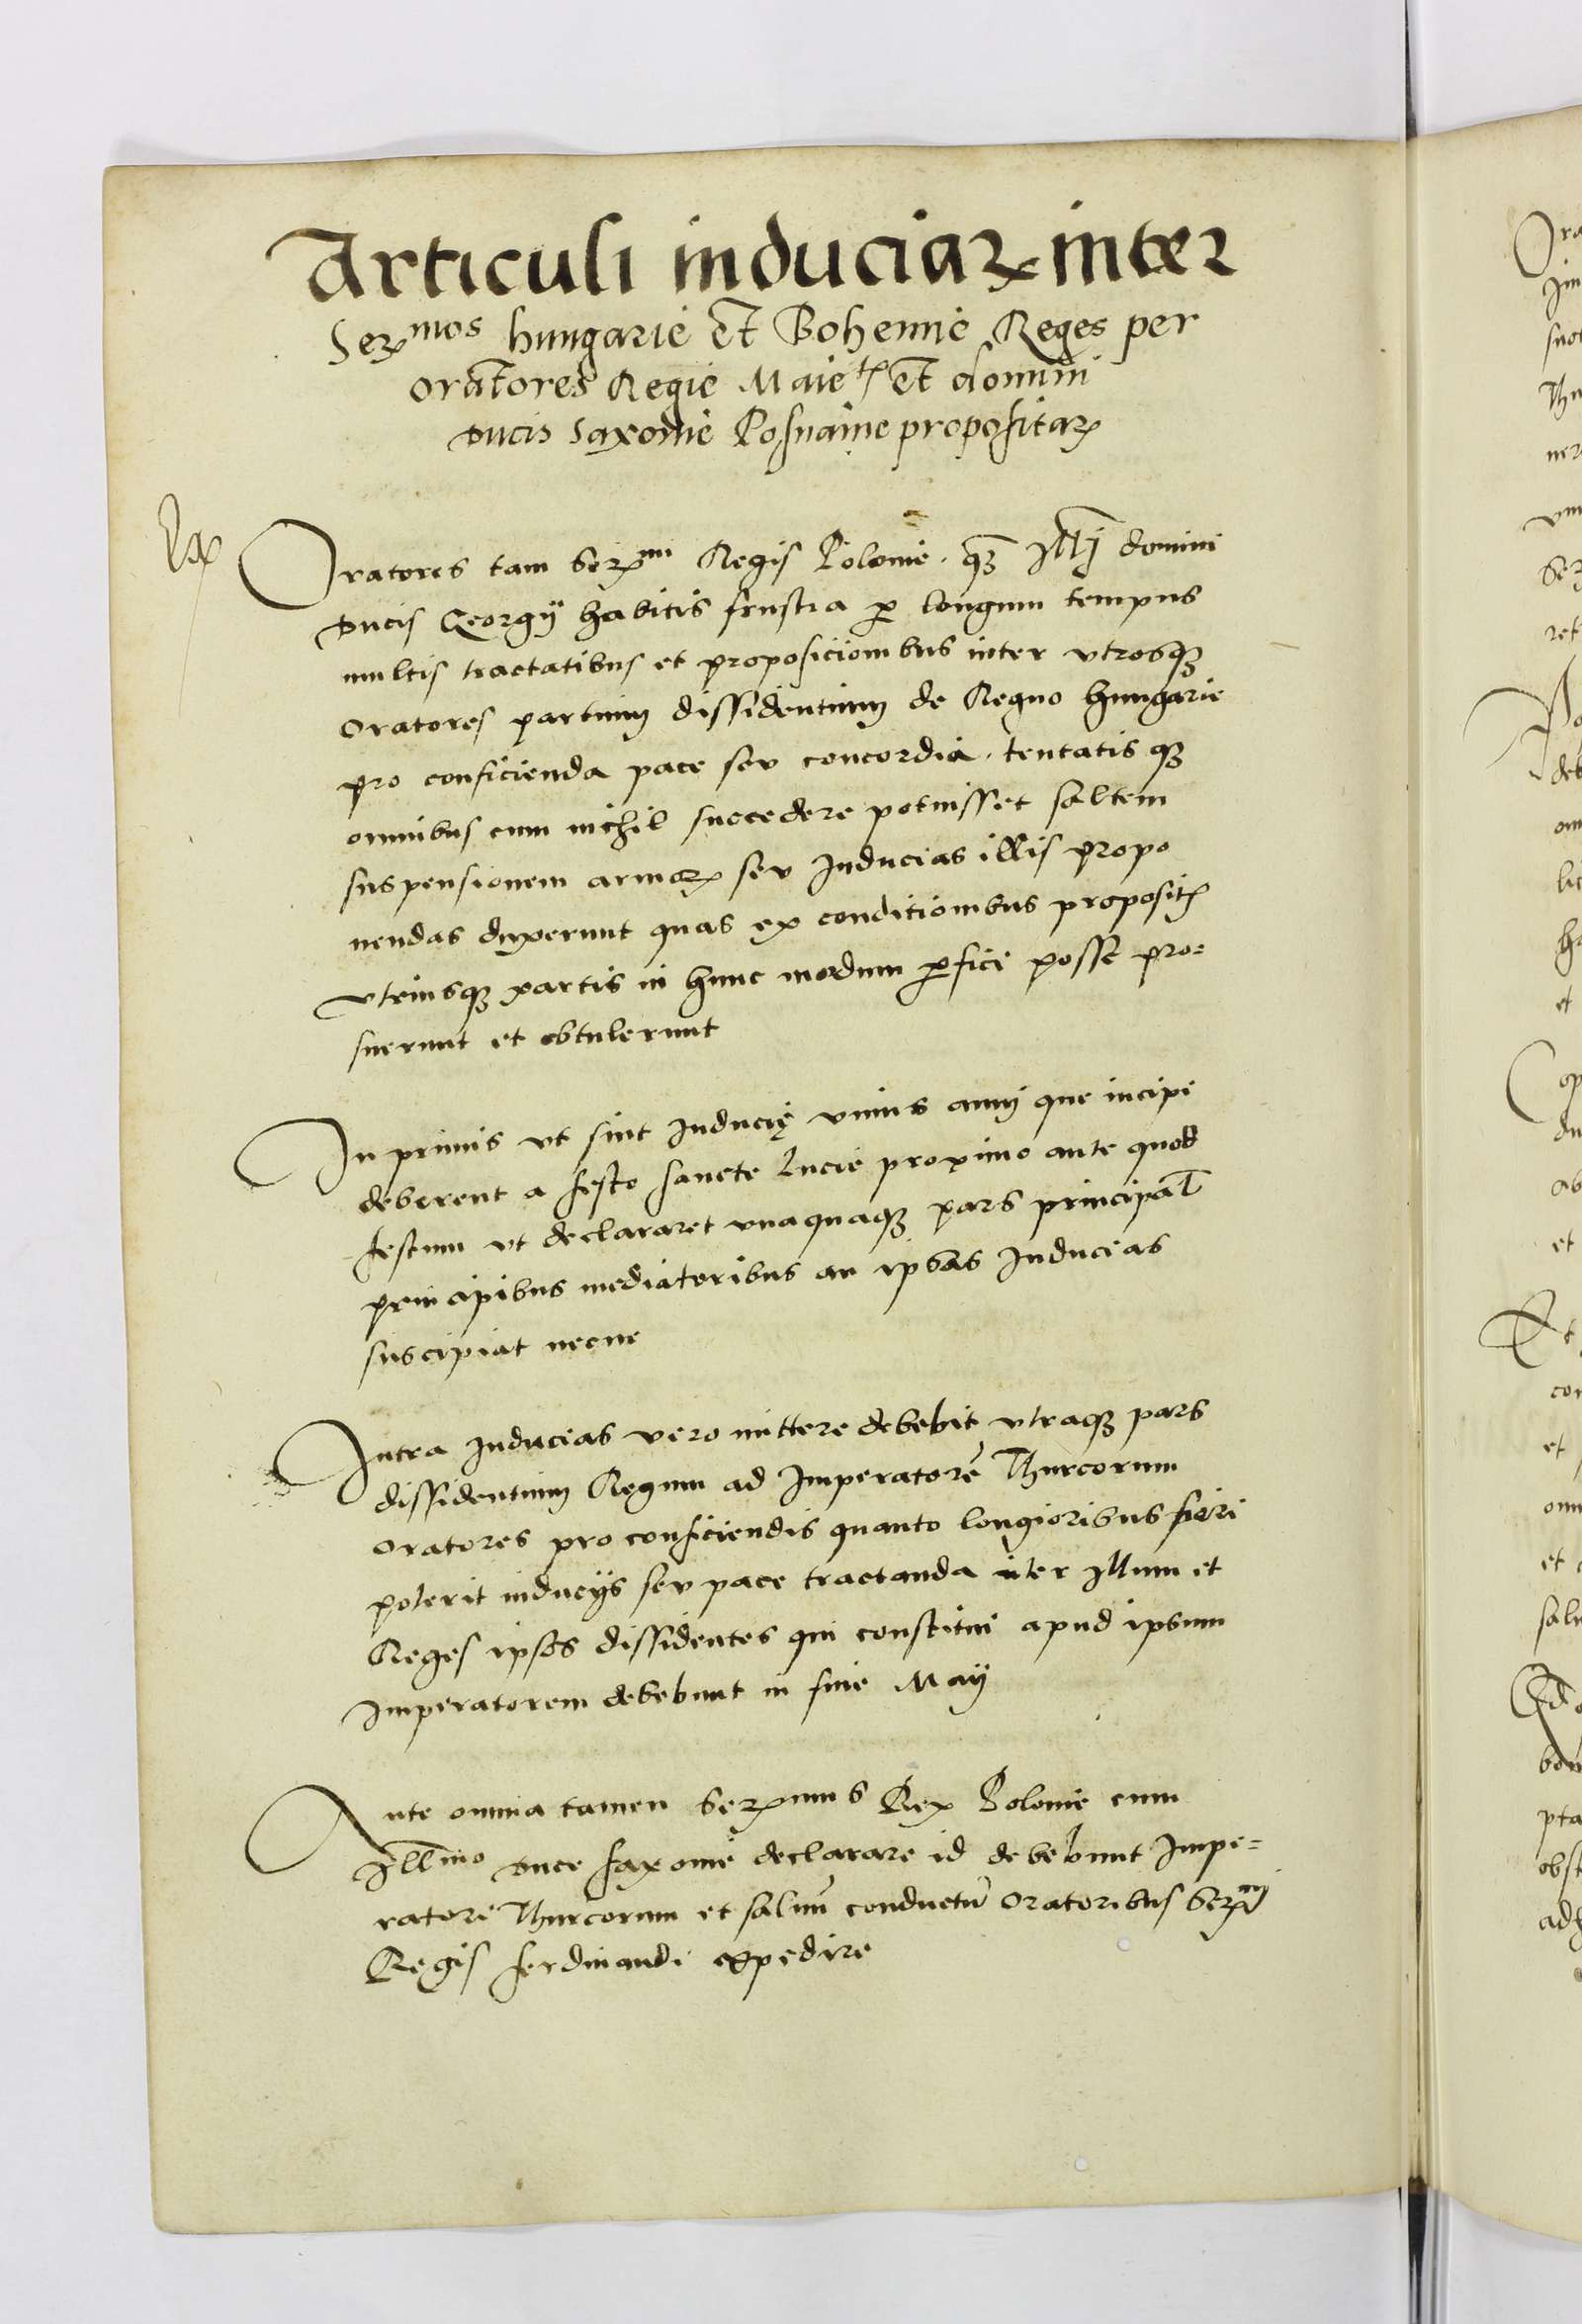 Articuli induciaꝝ inter
Serꝫmos hungarie et Bohemie Reges per
oratores Regie Maietꝭ et domini
Ducis Saxonie Posnanie propositaꝝ
Oratores tam Serꝫmi Regis Polonie. qꝫ Illmi domini
Ducis Georgij habitis frustra ꝑ longum tempus
multis tractatibus et proposicionibus inter vtrosqꝫ
oratores partium dissidentium de Regno hungarie
pro conficienda pace seu concordia. tentatis qꝫ
omnibus cum nichil succedere potuisset saltem
suspensionem armoꝝ seu Inducias illis propo
nendas duxerunt quas ex conditionibus propositꝭ
vtriusqꝫ partis in hunc modum ꝑfici posse pro-
suerunt et obtulerunt
In primis vt sint Inducię vnius anni que incipi
deberent a festo sancte Lucie proximo ante quod
festum vt declararet vnaquaqꝫ pars principal
principibus mediatoribus an ipsas Inducias
suscipiat necne
Intra Inducias vero mittere debebit vtraqꝫ pars
dissidentium Regum ad Imperatorē Thurcorum
oratores pro conficiendis quanto longioribus fieri
poterit inducijs seu pace tractanda inter Illum et
Reges ipsos dissidentes qui constitui apud ipsum
Imperatorem debebunt in fine Maij
Ante omnia tamen Serꝫmus Rex Polonie cum
Illmo Duce Saxonie declarare id debebunt Impe-
ratori Thurcorum et saluū conductū oratoribus Serꝫmi
Regis Ferdinandi expedire